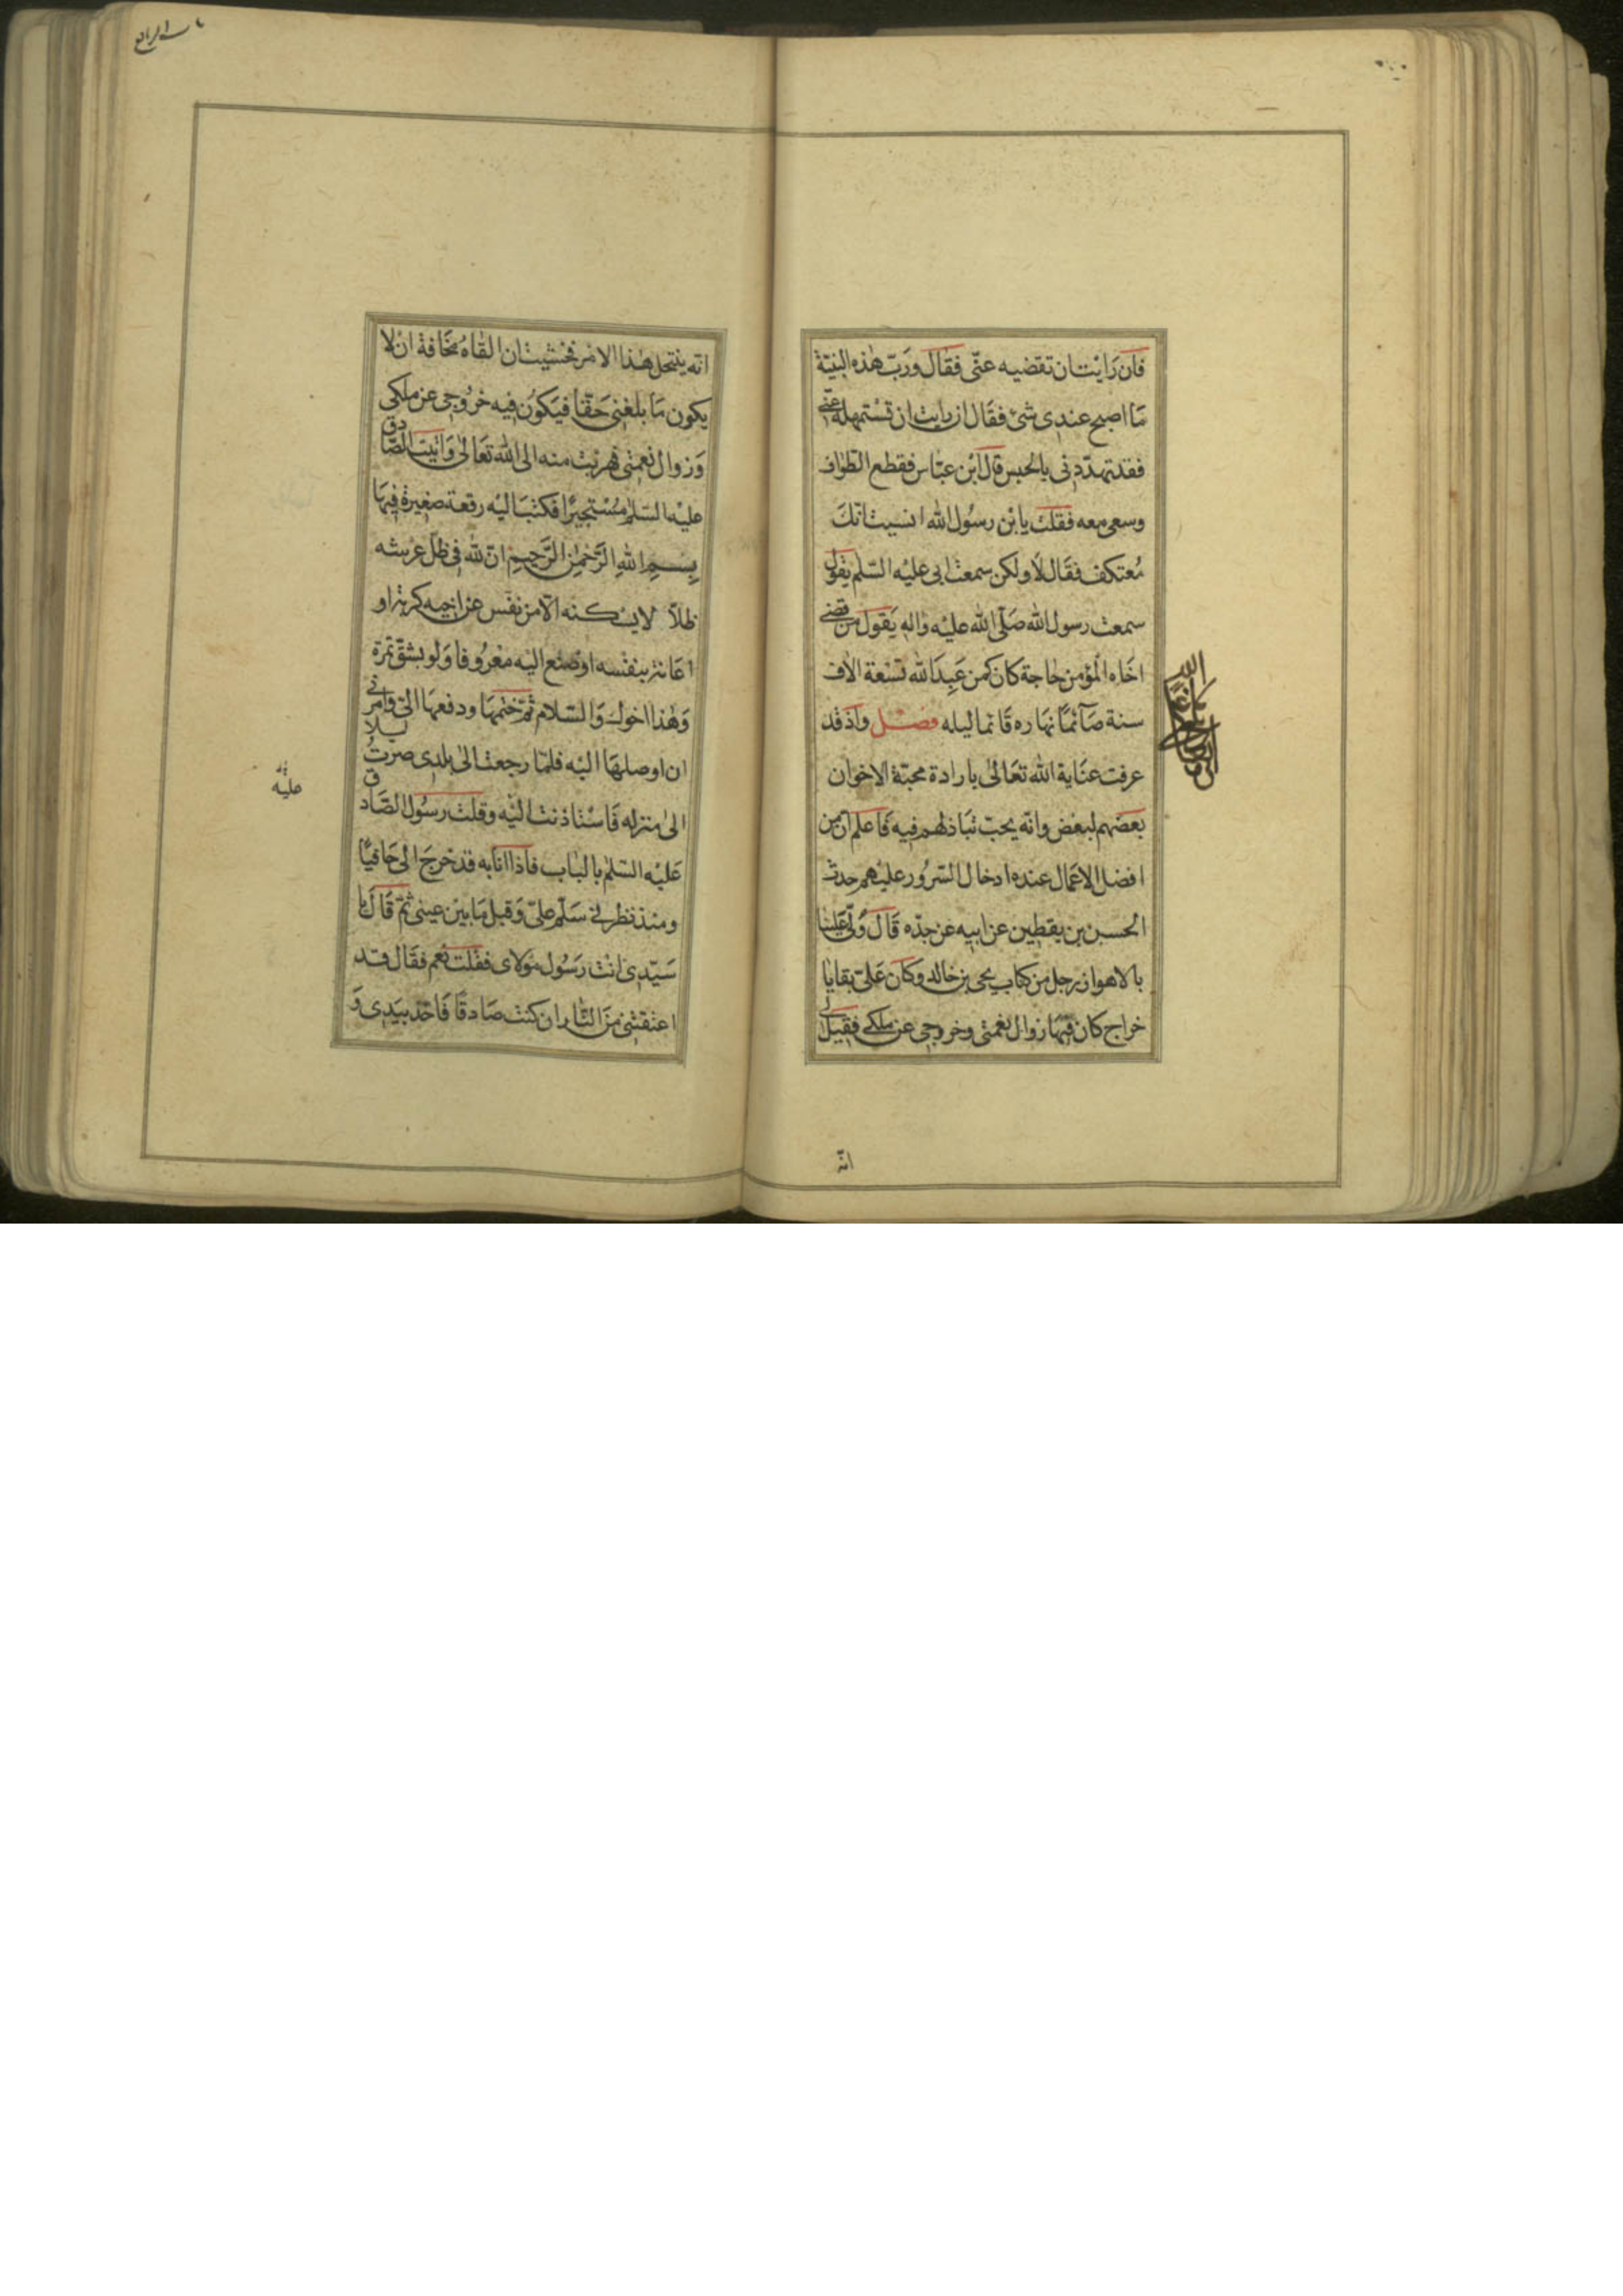 فان رَايْت ان تقضيه عنّى فقال وَرَبّ هٰذه البنيّة
مَا اصبح عندى شئ فقَال ان رايت ان تسْتمهله عنّى
فقد تهدّدنى بالحبس قال ابْن عبّاس فقطع الطواف
وسعى معه فقلت يابْن رسُول الله انسيت انّك
مُعتكف فقَال لا ولكن سمعت ابى عليْه السّلم يقول
سمعت رسول الله صَلّى الله عليْه واله يَقول من قضى
اخَاه المؤمن حاجة كان كمن عَبدَ الله تسْعة الاف
سنة صَآئمًا نهاره قَائما ليله فصل واذ قد
عرفت عنَاية الله تعَالىٰ بارادة محبّة الاخوان
بعضهم لبعْض وانّه يحبّ تبَاذلهم فيه فَاعلم انّ من
افضل الاعمَال عنده ادخال السّرُور عليْهم حدث
الحسن بن يقطين عن ابيه عن جدّه قَال وُلّى عَليْنا
بالاهواز رجل من كتاب يحى بن خالد وكَان عَلىّ بقايَا
خراج كان فيهَا زوال نعْمتى وخروجى عن ملكى فقيل لى
انّه
انّه ينْتحل هٰذا الامْر فخشيت ان القَاهُ مخَافة ان لا
يكون مَا بلغنى حَقّا فيَكوُن فيه خرُوجى عن ملكى
وَزوال نعمتى فهربْت منه الى الله تعَالىٰ وَاتيْت الصّادق
عليْه السّلم مسْتجيرًا فكتبَ اليْه رقعة صَغيرة فيهَا
بسم الله الرّحمٰن الرّحيم انّ لله فى ظلّ عرْشه
ظلاّ لا يسكنه الاّ من نفّس عن اخيه كربة او
اعَانه بنفْسه اوْ صنع اليْه معْرُوفا وَلو بشقّ تمْرة
وَهٰذا اخوك وَالسّلام ثمّ ختمهَا ودفعهَا الىّ وامرنى
ان اوصلهَا اليْه فلمّا رجعت الىٰ بلدى صرتُ ليلا
الىٰ منزله فَاسْتاذنت اليْه وقلت رسُول الصّادق
عَليْه السّلم بالبَاب فاذا انا به قد خرجَ الىّ حَافيًا
ومنذ نظرنى سَلّم علىّ وَقبل مَا بيْن عينى ثمّ قَال يا
سَيّدى انْت رَسُول موْلاى فقلت نعم فقَال قد
اعْتقتنى منَ النّار ان كنت صَادقًا فَاخذ بيَدى وَ